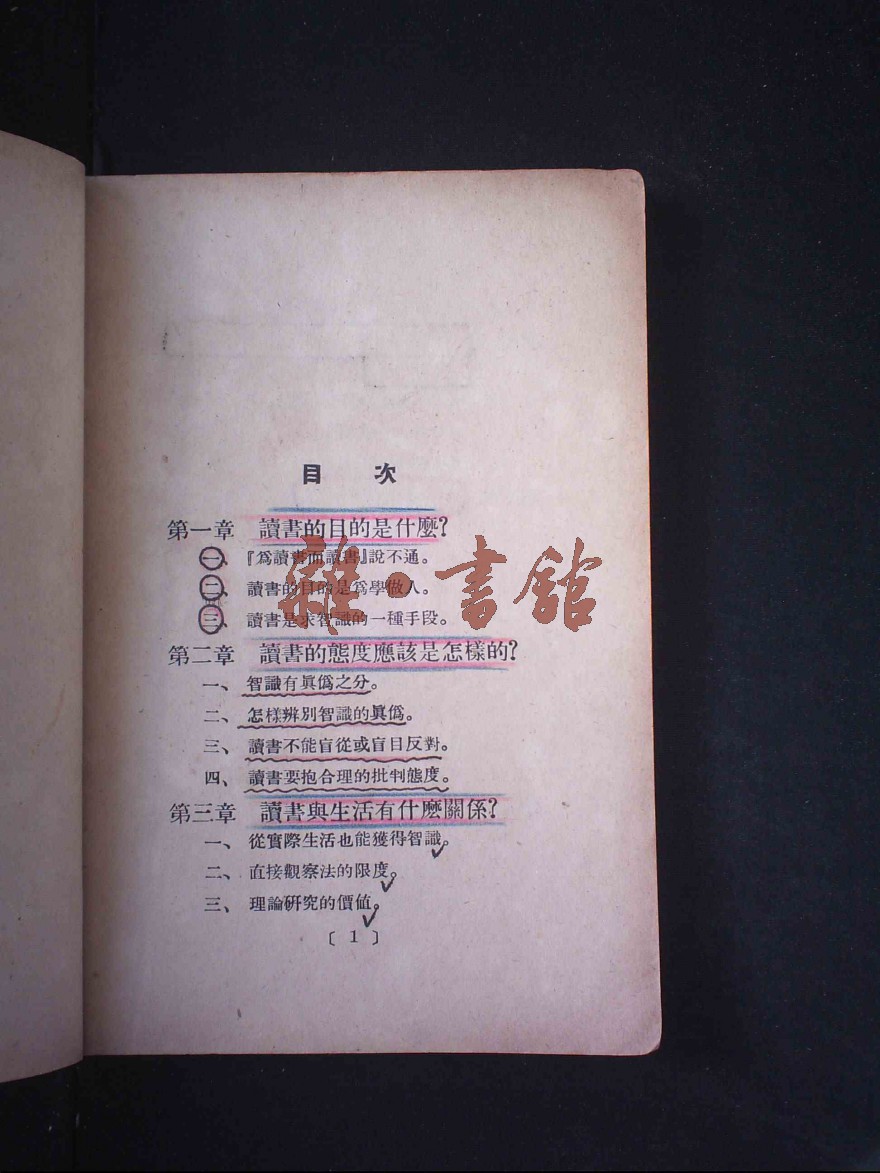 目 次
第一章 讀書的目的是什麼?
一、『爲讀書而讀書』說不通。
二、讀書的目的是爲學做人。
三、讀書是求智識的一種手段。
雜·書館
第二章 讀書的態度應該是怎樣的?
一、智識有眞僞之分。
二、怎樣辨別智識的眞僞。
三、讀書不能盲從或盲目反對。
四、讀書要抱合理的批判態度。
第三章 讀書與生活有什麼關係?
一、從實際生活也能獲得智識。
二、直接觀察法的限度。
三、理論研究的價値。
〔 1 〕